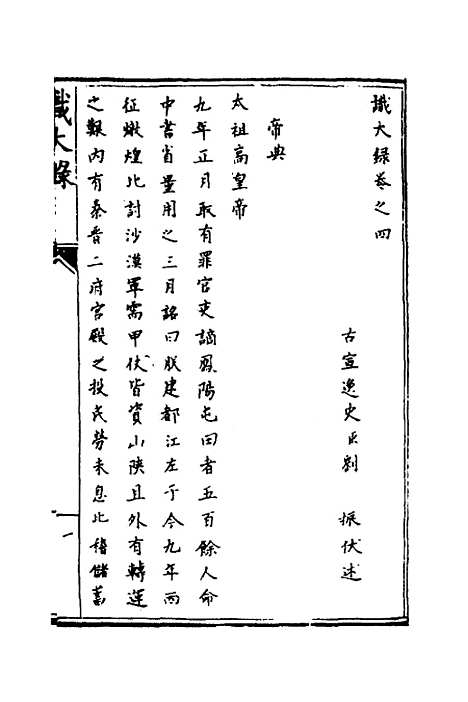 識大録卷之四
古宣逸史臣劉　振伏述
帝典
太祖高皇帝
九年正月取有罪官吏謫鳳陽屯田者五百餘人命
中書省量用之三月詔曰朕建都江左于今九年西
征燉煌北討沙漠軍需甲仗皆資山陝且外有轉運
之艱内有秦晋二府宫殿之役民勞未息比稽儲蓄
識大録
一